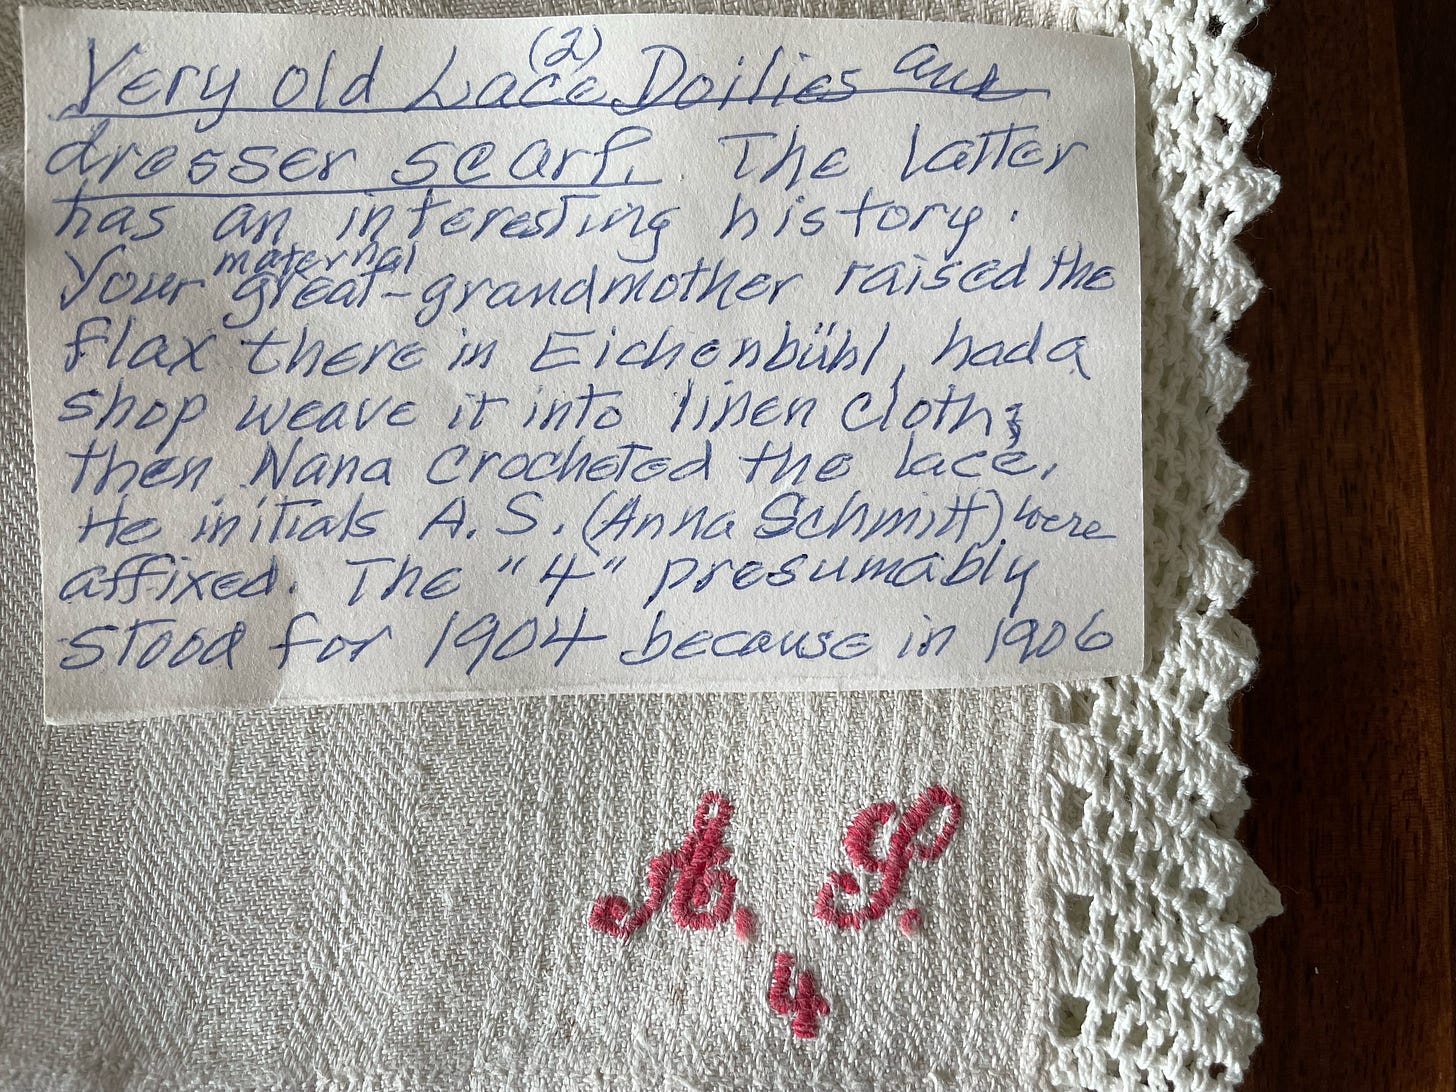 (2)
Very old Lace Doilies and
dresser scarf. The latter
has an interesting history.
maternal
Your great-grandmother raised the
flax there in Eichenbühl, had a
shop weave it into linen cloth;
then Nana crocheted the lace.
He initials A. S. (Anna Schmitt) were
affixed. The "4" presumably
stood for 1904 because in 1906
A. S.
4